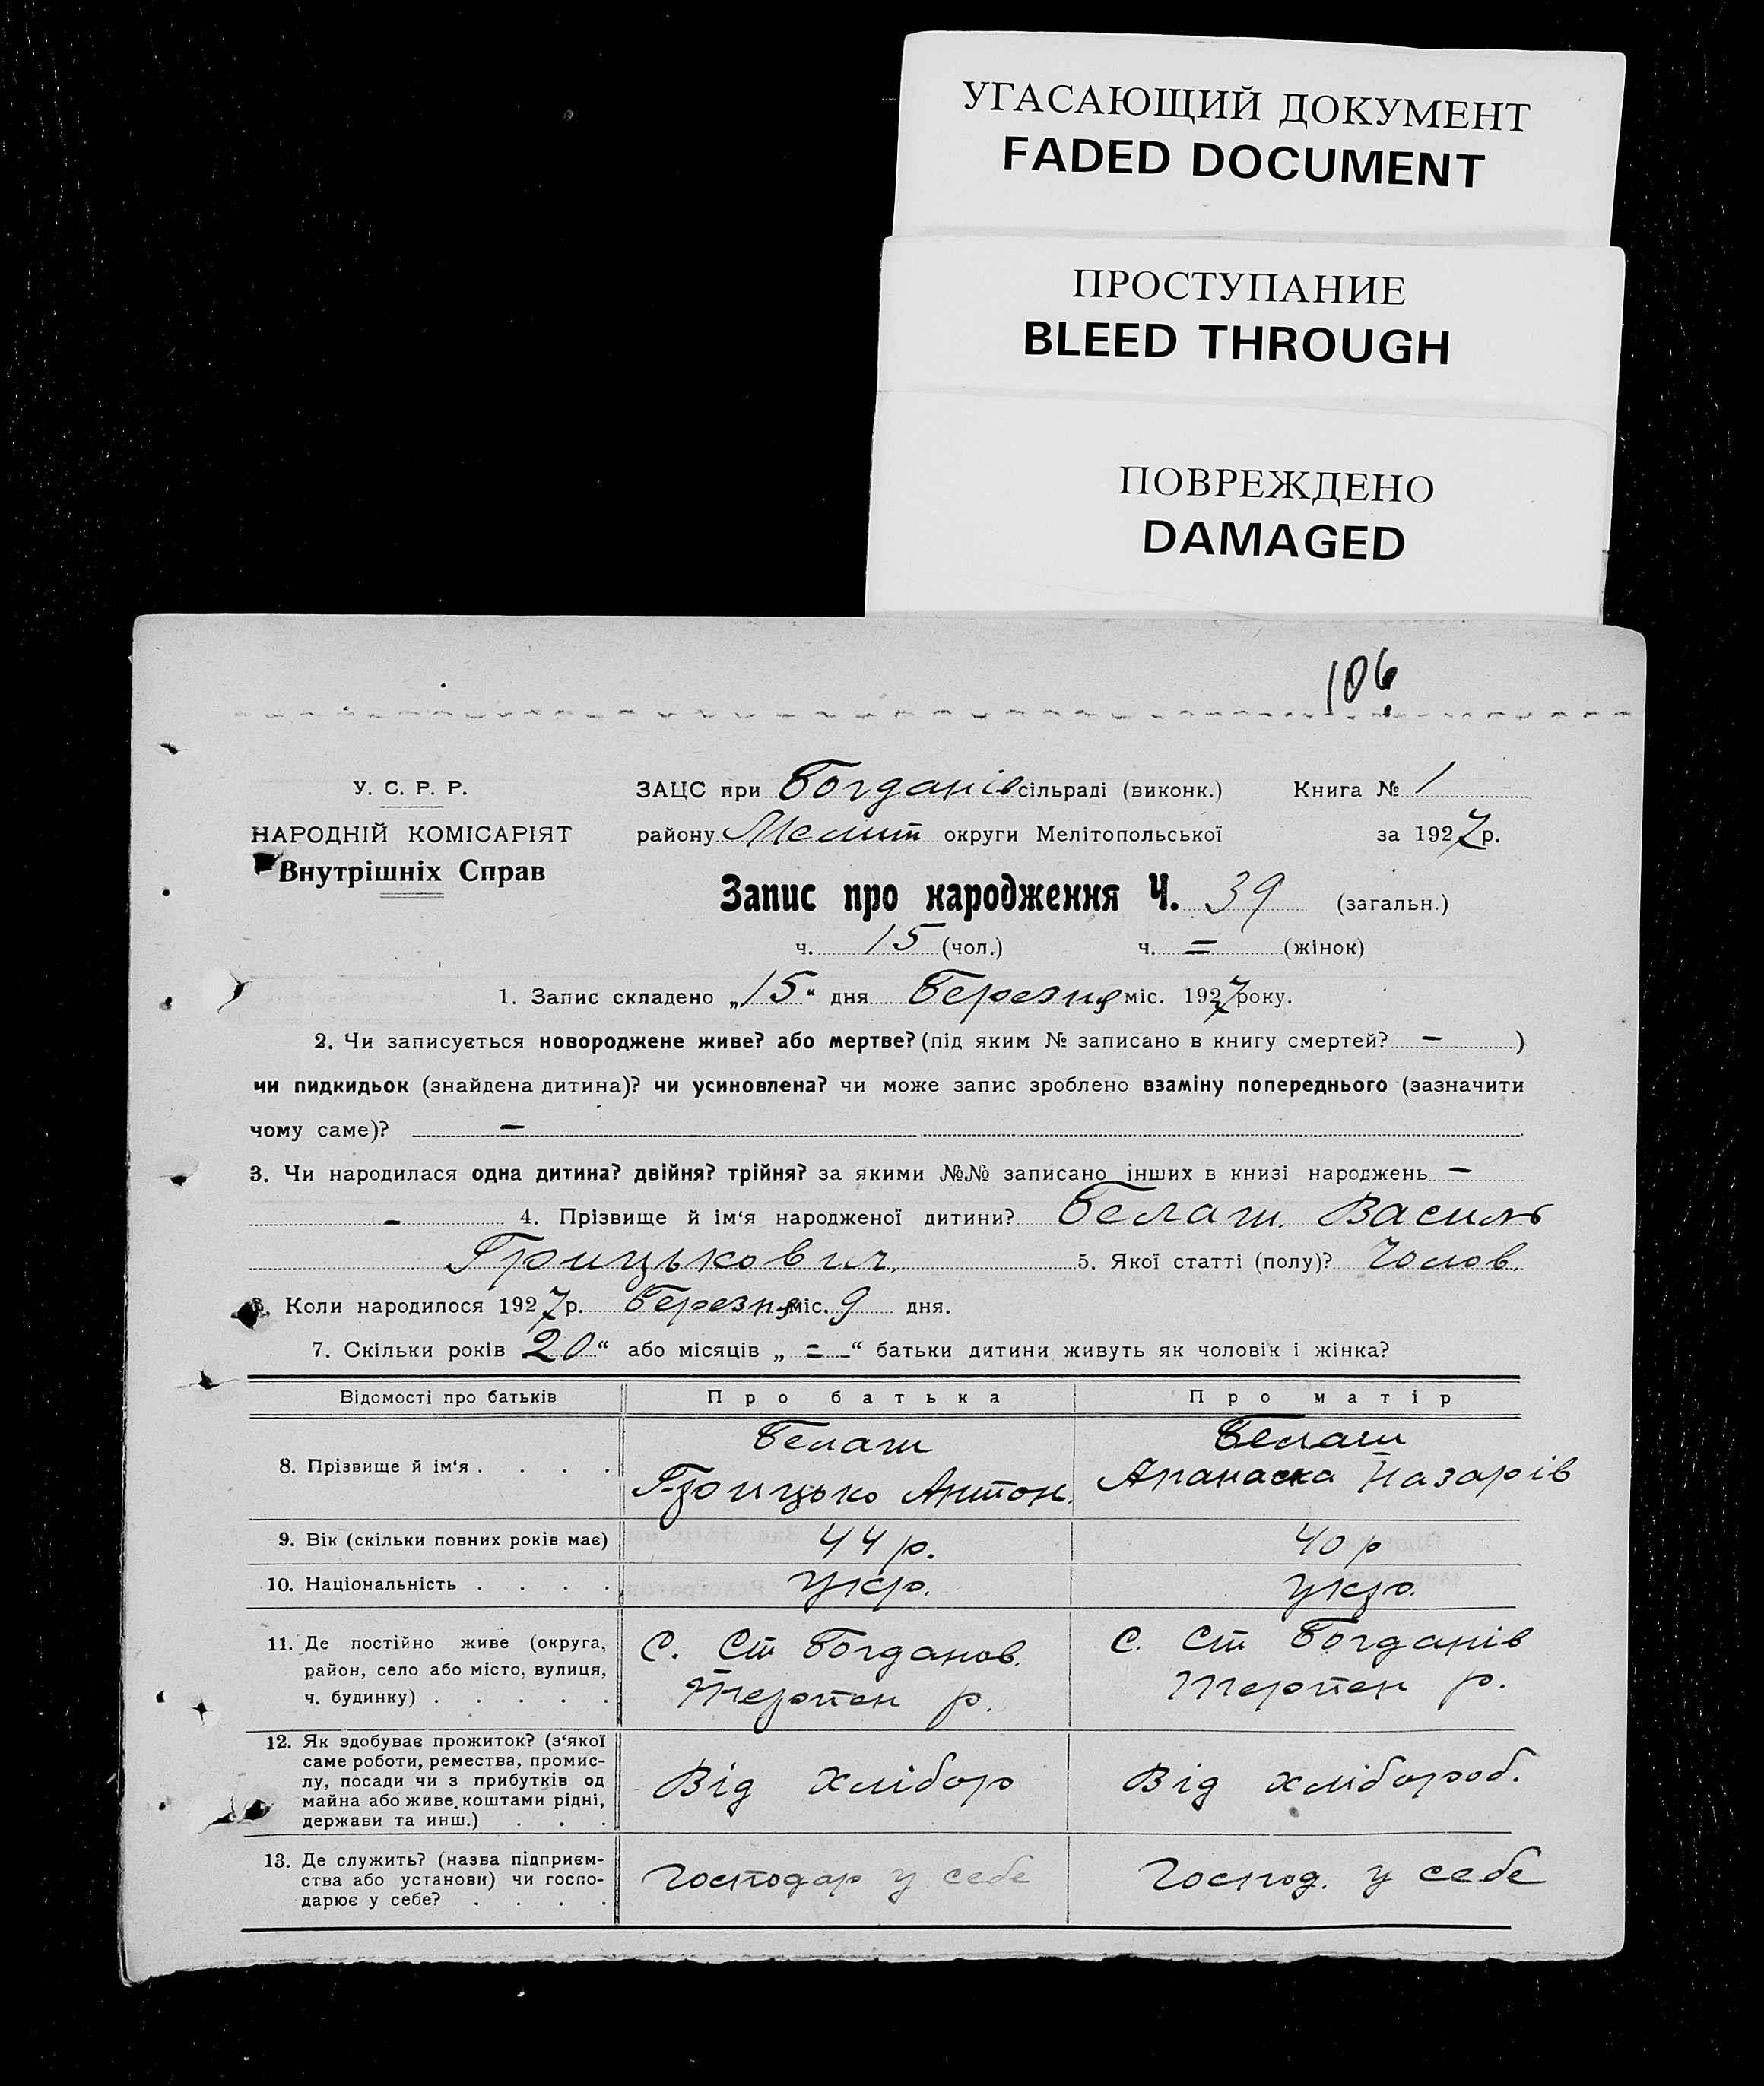 УГАСАЮЩИЙ ДОКУМЕНТ
FADED DOCUMENT
ПРОСТУПАНИЕ
BLEED THROUGH
ПОВРЕЖДЕНО
DAMAGED
106
У. С. Р. Р.
НАРОДНІЙ КОМІСАРІЯТ
Внутрішніх Справ
ЗАЦС при Богданів сільраді (виконк.) Книга № 1
району Мелит округи Мелітопольської за 1927 р.
Запис про народження Ч. 39 (загальн.)
ч. 15 (чол.) ч. = (жінок)
1. Запис складено „15“ дня Березня міс. 1927 року.
2. Чи записується новороджене живе? або мертве? (під яким № записано в книгу смертей? — )
чи пидкидьок (знайдена дитина)? чи усиновлена? чи може запис зроблено взаміну попереднього (зазначити
чому саме)? —
3. Чи народилася одна дитина? двійня? трійня? за якими №№ записано інших в книзі народжень —
- 4. Прізвище й ім‘я народженої дитини? Белаш. Василь
Грицькович. 5. Якої статті (полу)? Чолов.
6. Коли народилося 1927 р. Березня міс. 9 дня.
7. Скільки років 20 “ або місяців „ = “ батьки дитини живуть як чоловік і жінка?
Відомості про батьків Про батька Про матір
8. Прізвище й ім‘я . . . .
Белаш
Грицько Антон.
Белаш
Апанаска Назарів
9. Вік (скільки повних років має) 44 р. 40 р
10. Національність . . . . укр. укр.
11. Де постійно живе (округа,
район, село або місто, вулиця,
ч. будинку) . . . . .
С. Ст Богданов.
Терпен р.
С. Ст Богданів
Терпен р.
12. Як здобуває прожиток? (з‘якої
саме роботи, ремества, промис-
лу, посади чи з прибутків од
майна або живе коштами рідні,
держави та инш.) . . .
Від хлібор
Від хлібороб.
13. Де служить? (назва підприєм-
ства або установи) чи госпо-
дарює у себе? . . . .
Господар у себе
Господ. у себе